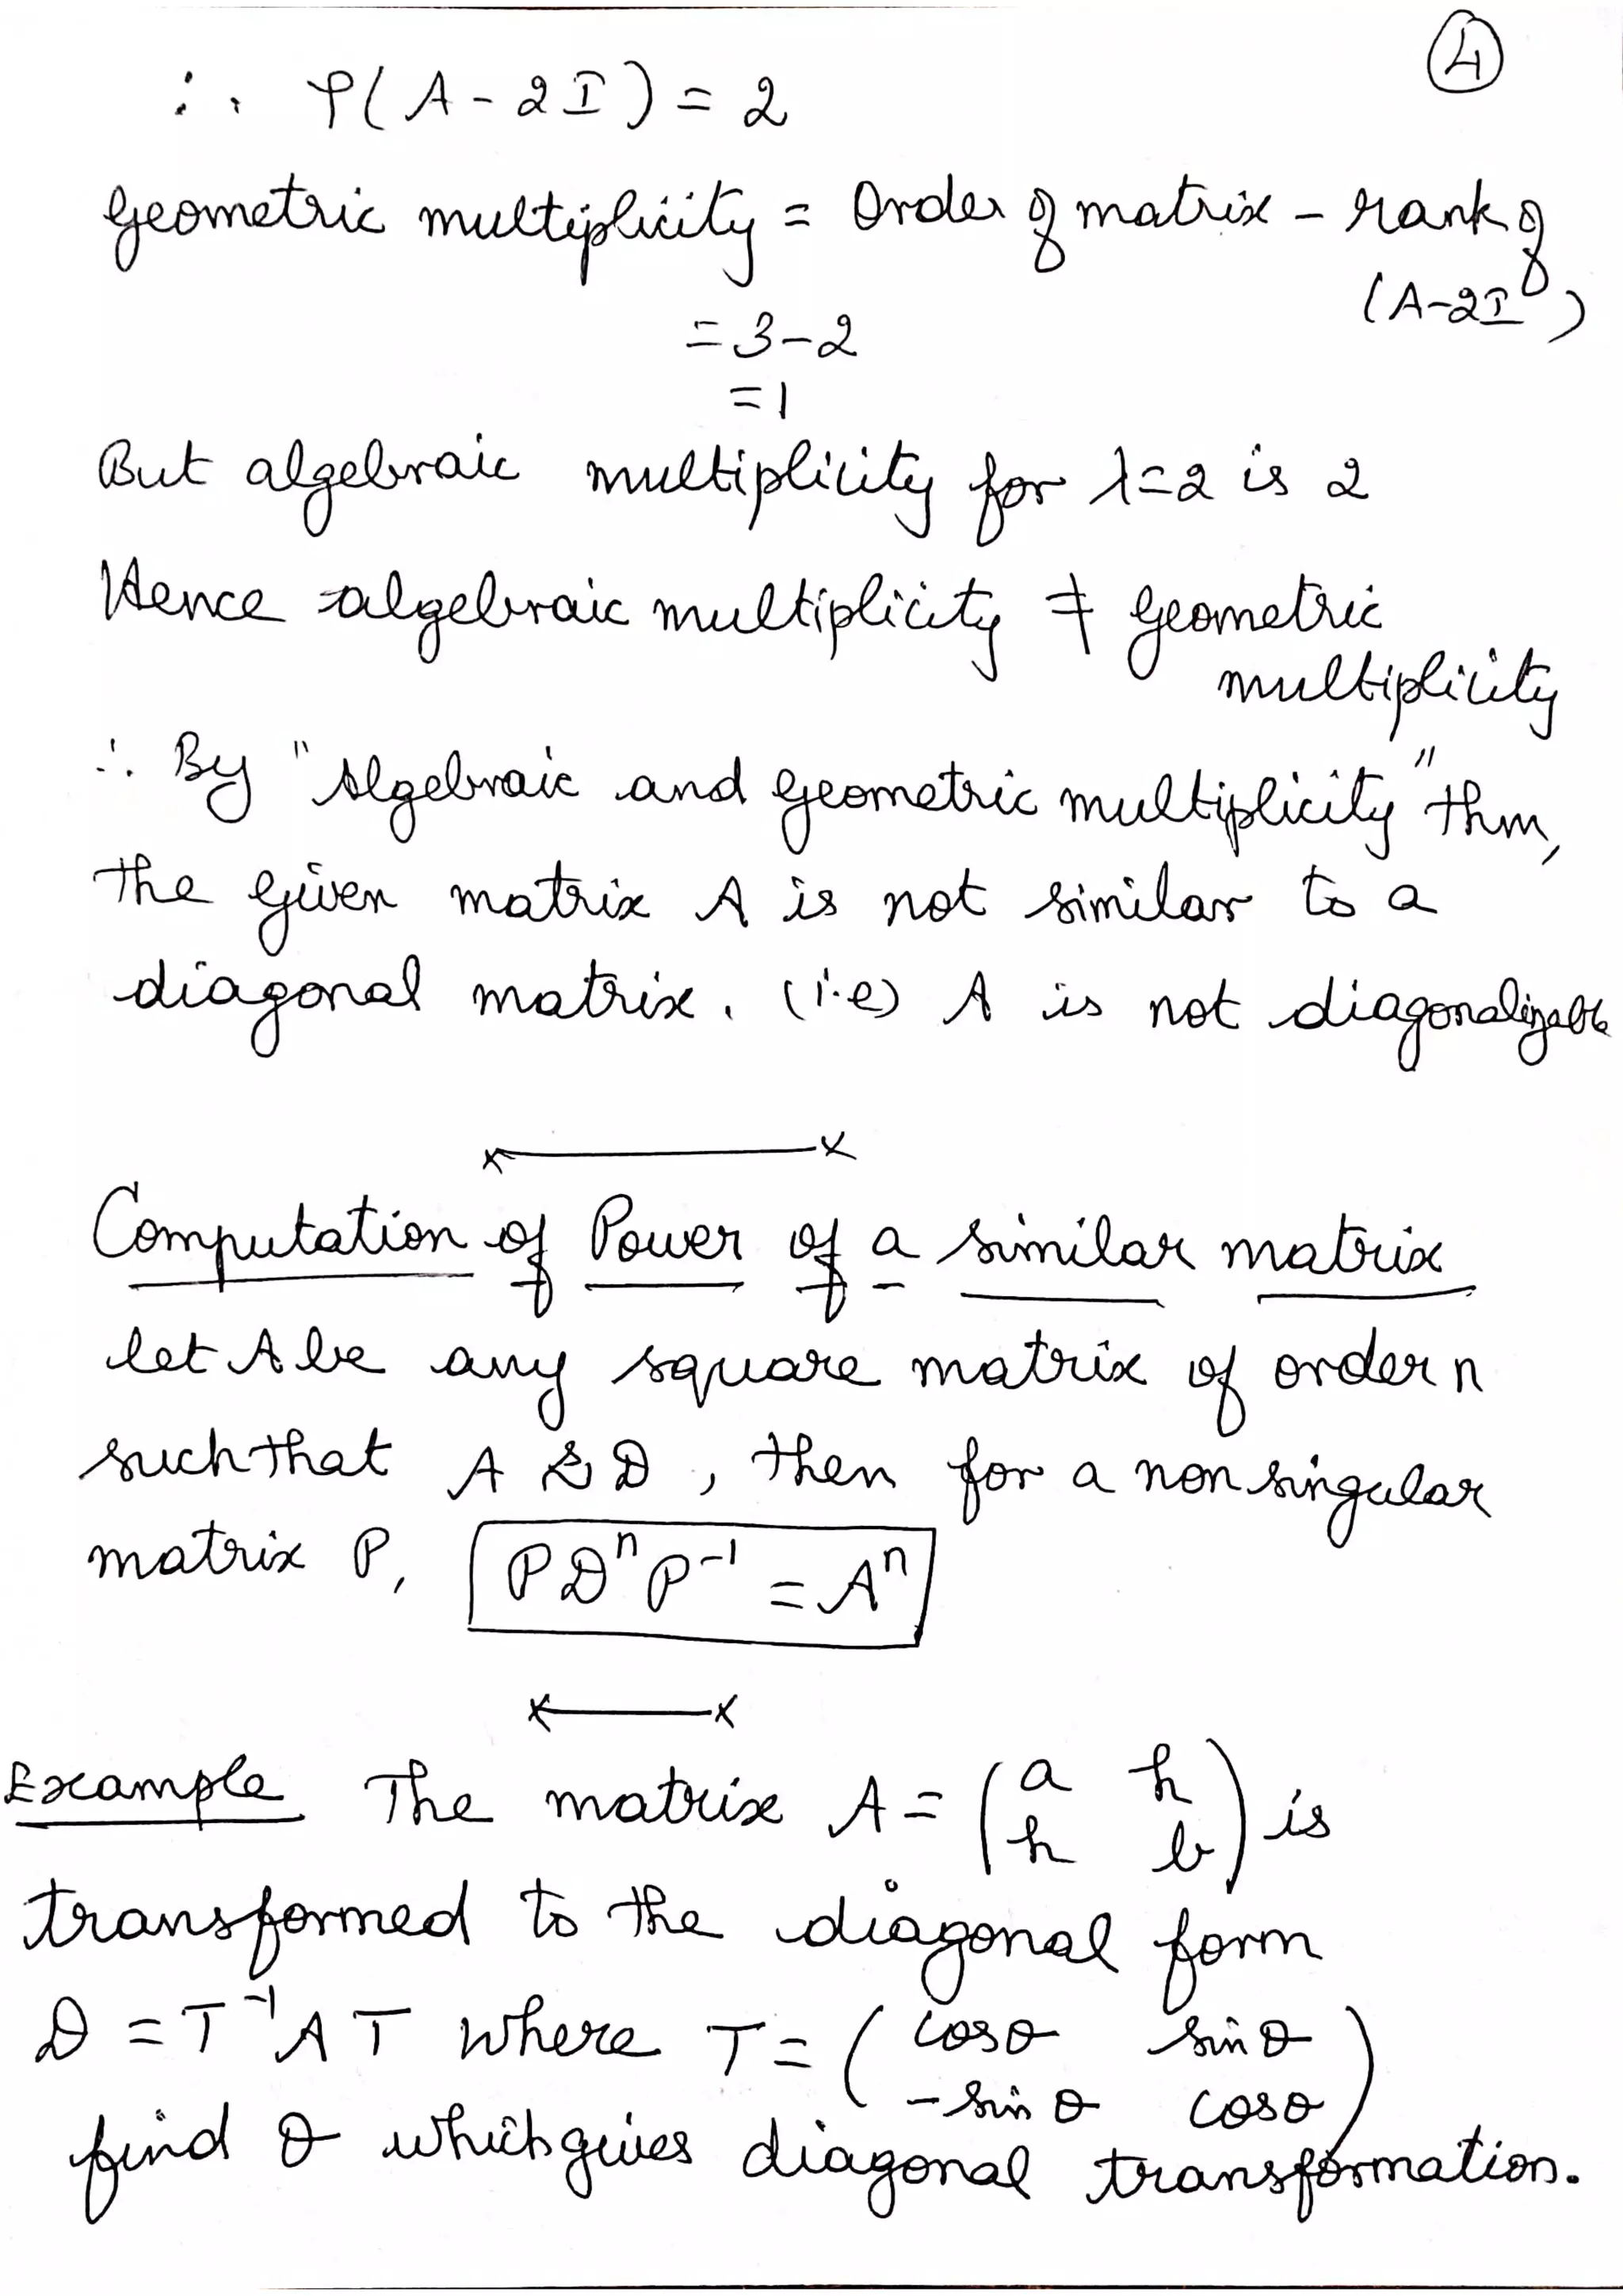 4
∴ ρ(A - 2I) = 2
Geometric multiplicity = Order of matrix - rank of
(A-2I)
= 3-2
= 1
But algebraic multiplicity for λ=2 is 2
Hence algebraic multiplicity ≠ geometric
multiplicity
∴ By "Algebraic and geometric multiplicity" thm,
the given matrix A is not similar to a
diagonal matrix. (i.e) A is not diagonalizable
x———x
Computation of Power of a similar matrix
let A be any square matrix of order n
such that A & D, then for a non singular
matrix P, PDⁿP⁻¹ = Aⁿ
x———x
Example The matrix A = (a h
h b) is
transformed to the diagonal form
D = T⁻¹AT where T = (cosθ sinθ
-sinθ cosθ)
find θ which gives diagonal transformation.